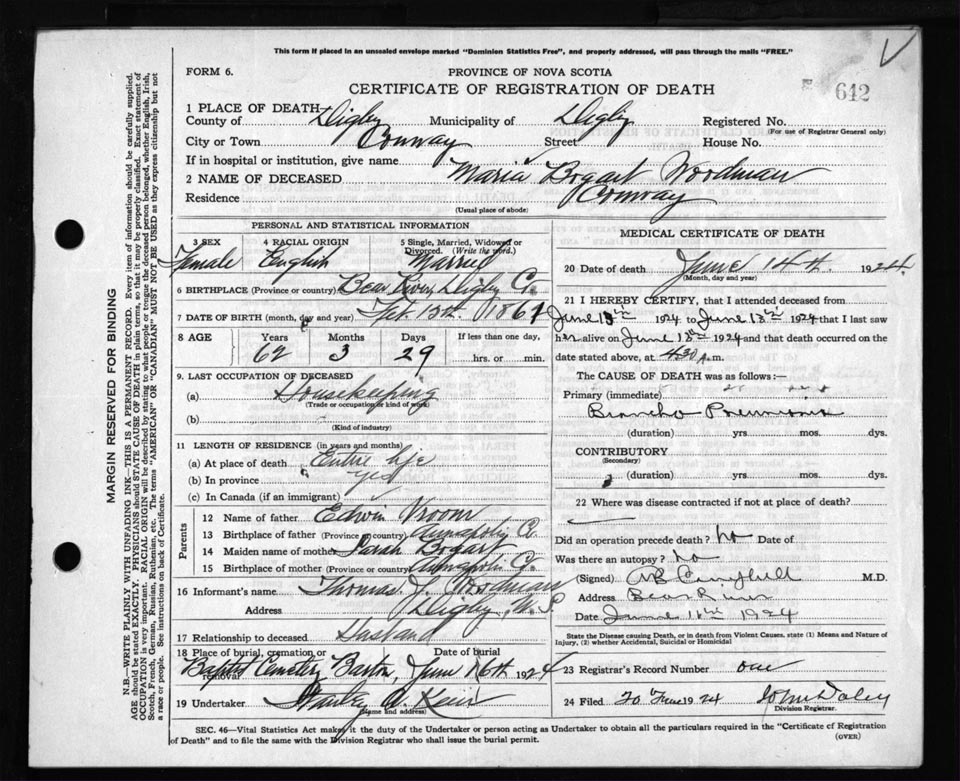 This form if placed in an unsealed envelope marked "Dominion Statistics Free", and properly addressed, will pass through the mails "FREE."
FORM 6.
PROVINCE OF NOVA SCOTIA
CERTIFICATE OF REGISTRATION OF DEATH
642
1 PLACE OF DEATH
County of Digby Municipality of Digby Registered No.
(For use of Registrar General only)
City or Town Conway Street House No.
If in hospital or institution, give name
2 NAME OF DECEASED Maria Bogart Woodman
Residence Conway
(Usual place of abode)
PERSONAL AND STATISTICAL INFORMATION
3 SEX 4 RACIAL ORIGIN 5 Single, Married, Widowed or Divorced. (Write the word.)
Female English Married
6 BIRTHPLACE (Province or country) Bear River, Digby Co.
7 DATE OF BIRTH (month, day and year) Feb. 15th, 1861
8 AGE Years Months Days If less than one day,
62 3 29 hrs. or min.
9. LAST OCCUPATION OF DECEASED
(a) Housekeeping
(Trade or occupation or kind of work)
(b)
(Kind of industry)
11 LENGTH OF RESIDENCE (in years and months)
(a) At place of death Entire life
(b) In province yes
(c) In Canada (if an immigrant)
Parents
12 Name of father Edwin Vroom
13 Birthplace of father (Province or country) Annapolis Co.
14 Maiden name of mother Sarah Bogart
15 Birthplace of mother (Province or country) Annapolis Co.
16 Informant's name Thomas J. Woodman
Address Digby, N.S
17 Relationship to deceased Husband
18 Place of burial, cremation, or removal Date of burial
Baptist Cemetery Barton, June 16th 1924
19 Undertaker Stanley
(name and address)
MEDICAL CERTIFICATE OF DEATH
20 Date of death June 14th. 1924.
(Month, day and year)
21 I HEREBY CERTIFY, that I attended deceased from
June 13th 1924 to June 13th 1924 that I last saw
her alive on June 13th 1924 and that death occurred on the
date stated above, at 4.30 A.m.
The CAUSE OF DEATH was as follows:—
Primary (immediate)
Broncho Pneumonia
(duration) yrs mos. dys.
CONTRIBUTORY
(Secondary)
(duration) yrs. mos. dys.
22 Where was disease contracted if not at place of death?
Did an operation precede death? No Date of
Was there an autopsy? No
(Signed) Campbell M.D.
Address Bear River
Date June 1924
State the Disease causing Death, or in death from Violent Causes, state (1) Means and Nature of Injury, (2) whether Accidental, Suicidal or Homicidal
23 Registrar's Record Number one
24 Filed 20 June 1924 John Daley
Division Registrar.
SEC. 46—Vital Statistics Act makes it the duty of the Undertaker or person acting as Undertaker to obtain all the particulars required in the "Certificate of Registration of Death" and to file the same with the Division Registrar who shall issue the burial permit.
(OVER)
MARGIN RESERVED FOR BINDING
N.B.—WRITE PLAINLY WITH UNFADING INK—THIS IS A PERMANENT RECORD. Every item of information should be carefully supplied.
AGE should be stated EXACTLY. PHYSICIANS should STATE CAUSE OF DEATH in plain terms, so that it may be properly classified. Exact statement of
OCCUPATION is very important. RACIAL ORIGIN will be described by stating to what people or tongue the deceased person belonged, whether English, Irish,
Scotch, French, German, Russian, Ruthenian, etc. The terms "AMERICAN" or "CANADIAN" MUST NOT BE USED as they express citizenship but not
a race or people. See instructions on back of Certificate.